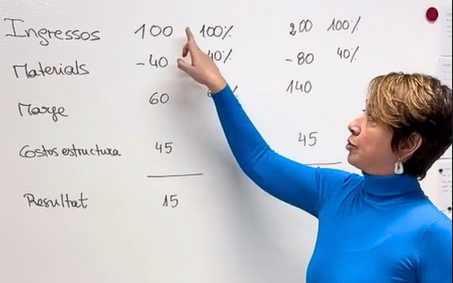 Ingressos 100 100% 200 100%
Materials -40 40% -80 40%
Marge 60 140
Costos estructura 45 45
Resultat 15